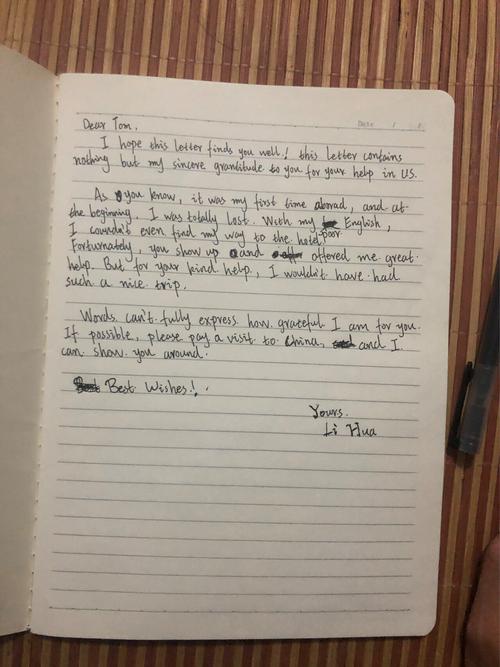 Date / /
Dear Tom,
I hope this letter finds you well! this letter contains
nothing but my sincere granditude to you for your help in US.
As you know, it was my first time abroad, and at
the beginning, I was totally lost. With my poor English,
I coundn't even find my way to the hotel.
Fortunately, you show up and offered me great
help. But for your kind help, I wouldn't have had
such a nice trip.
Words can't fully express how grateful I am for you.
If possible, please pay a visit to China, and I
can show you around.
Best Wishes!
Yours,
Li Hua